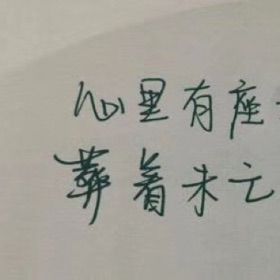 心里有座
葬着未亡